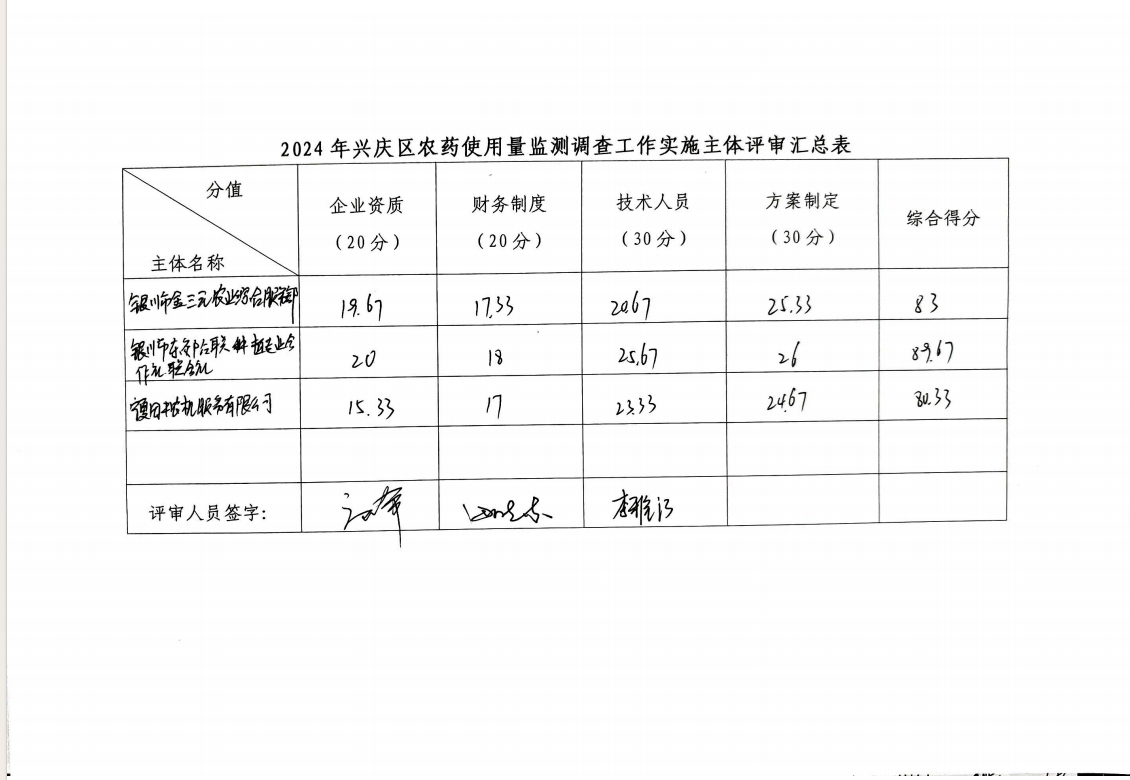 2024年兴庆区农药使用量监测调查工作实施主体评审汇总表
分值
主体名称
企业资质
（20分）
财务制度
（20分）
技术人员
（30分）
方案制定
（30分）
综合得分
银川市金三元农业综合服务部 19.67 17.33 20.67 25.33 83
银川市 联 业合 20 18 25.67 26 89.67
作社联合社
农机服务有限公司 15.33 17 23.33 24.67 80.33
评审人员签字：